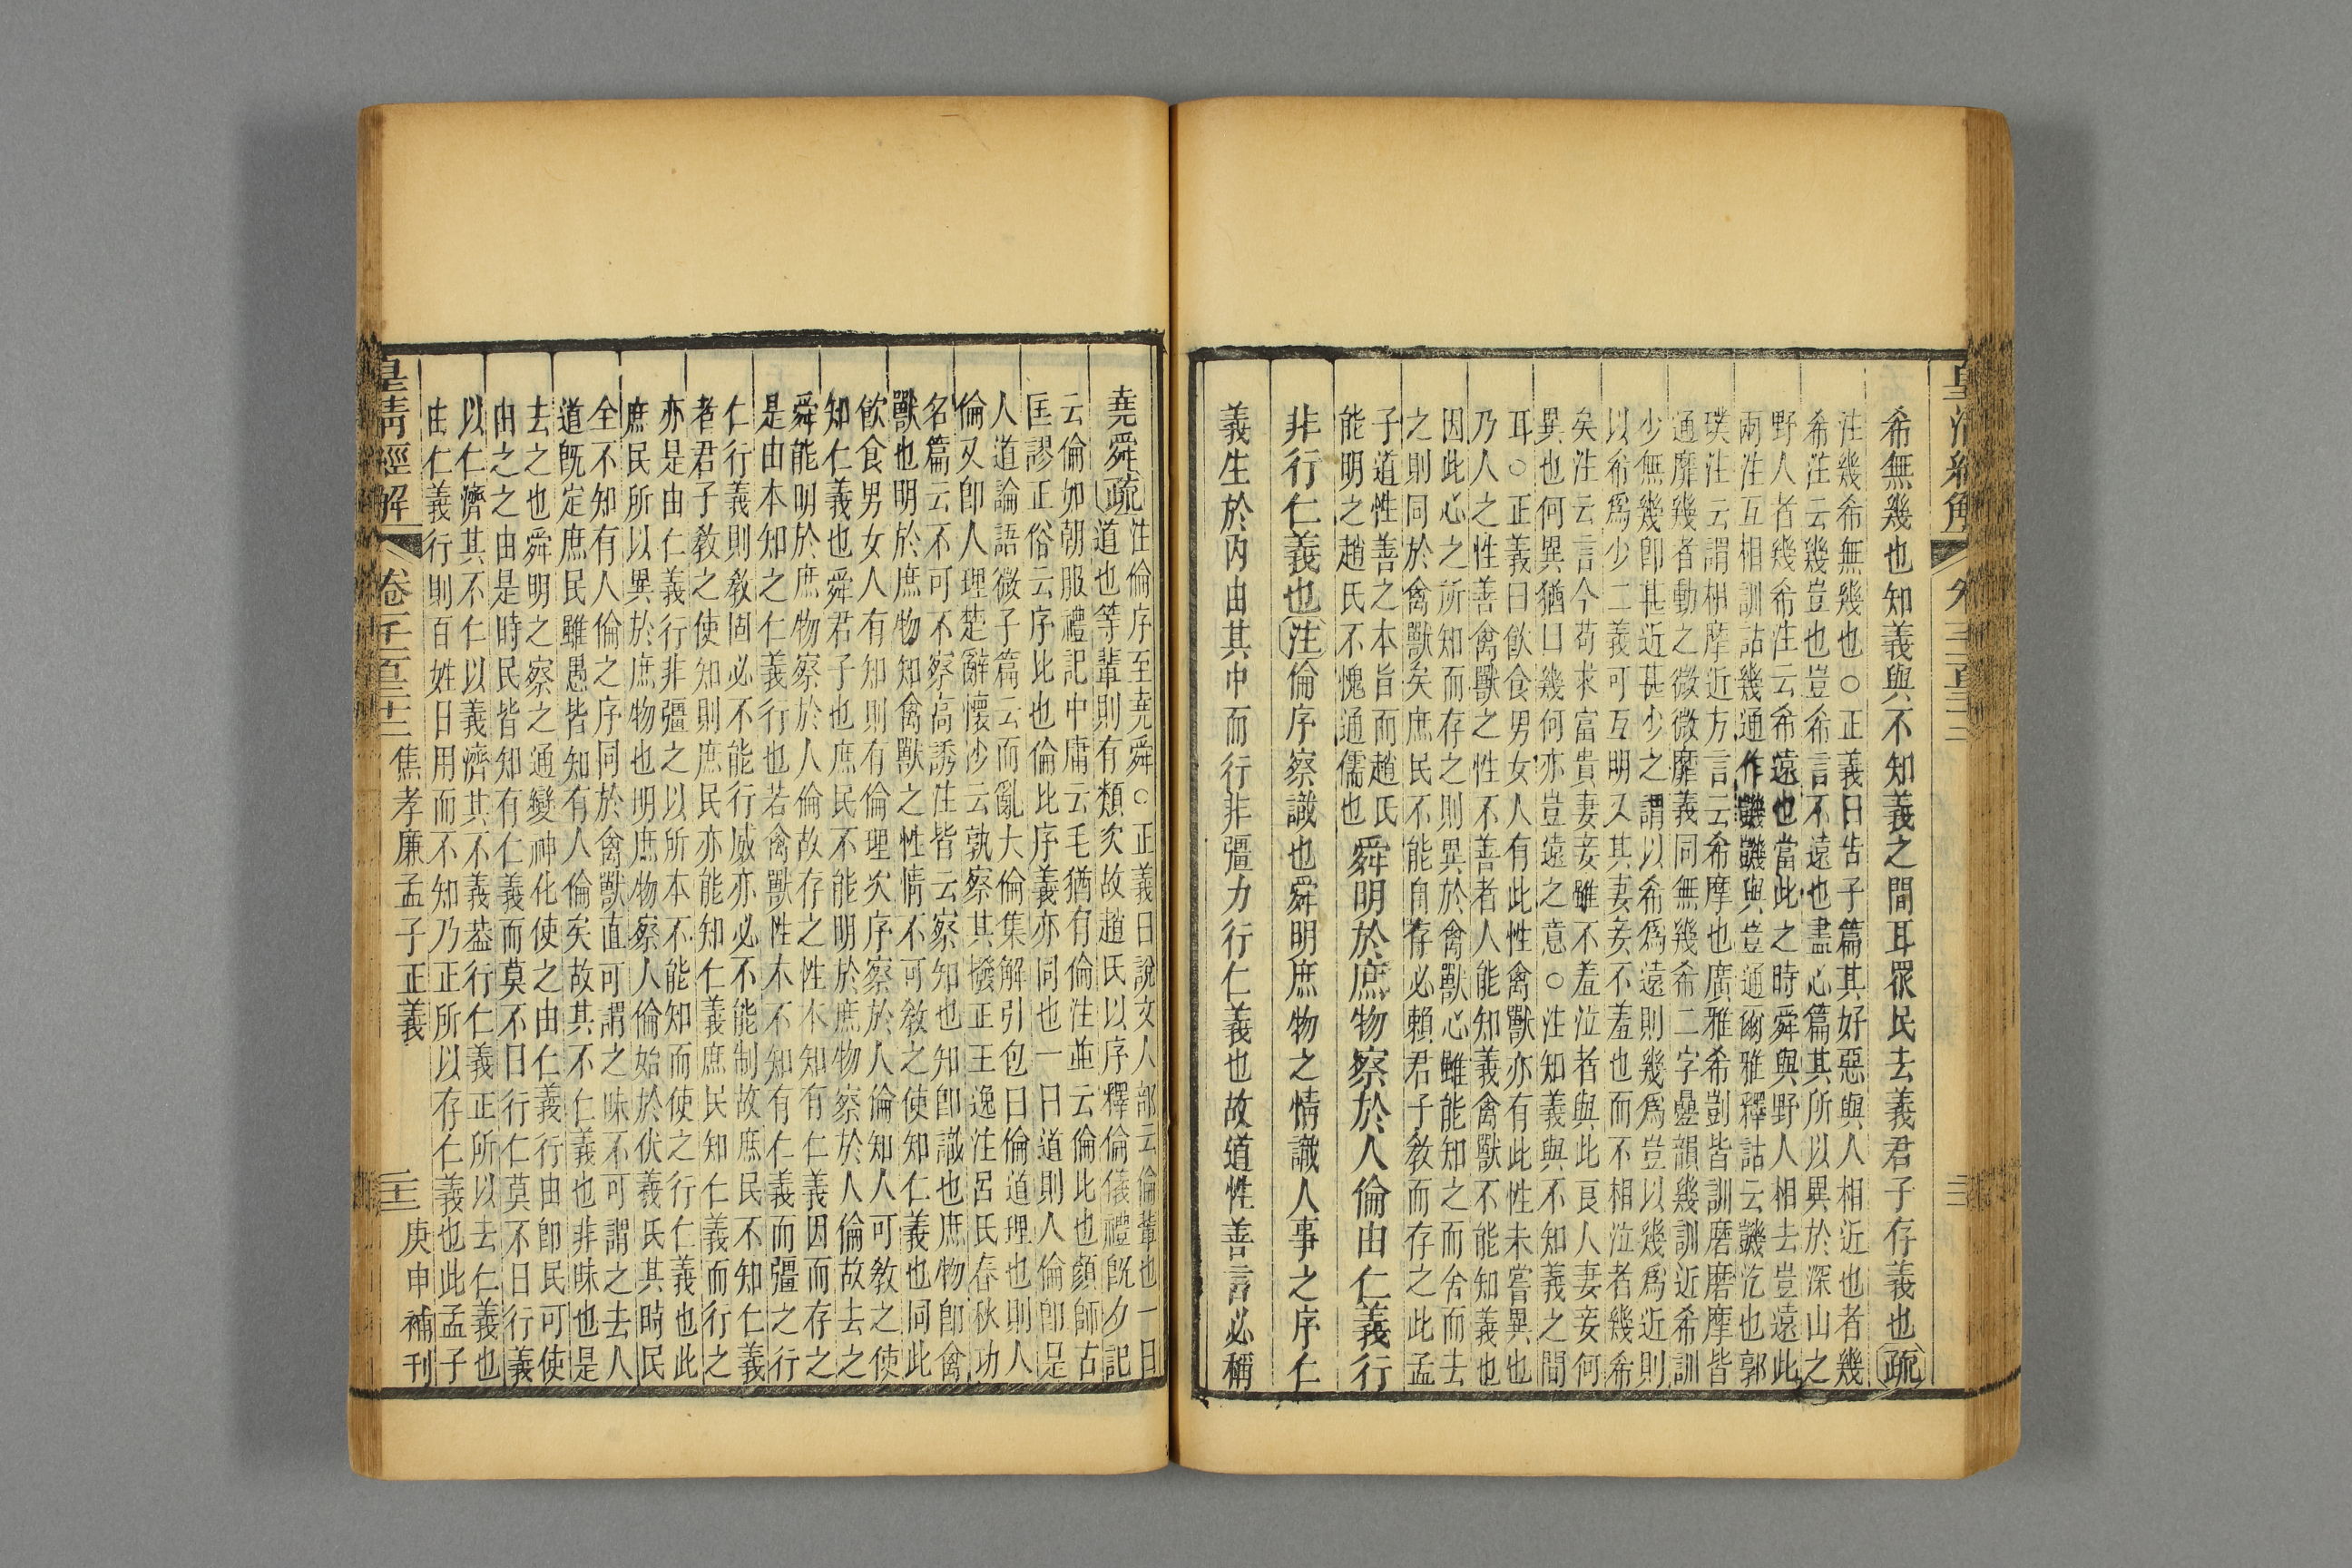 希無幾也知義與不知義之間耳眾民去義君子存義也疏
注幾希無幾也○正義曰告子篇其好惡與人相近也者幾
希注云幾豈也豈希言不遠也盡心篇其所以異於深山之
野人者幾希注云希遠也當此之時舜與野人相去豈遠此
兩注互相訓詁幾通作譏譏與豈通爾雅釋詁云譏汔也郭
璞注云謂相摩近方言云希摩也廣雅希剴皆訓磨磨摩皆
通靡幾者動之微微靡義同無幾希二字疊韻幾訓近希訓
少無幾卽甚近甚少之謂以希爲遠則幾爲豈以幾爲近則
以希爲少二義可互明又其妻妾不羞也而不相泣者幾希
矣注云言今苟求富貴妻妾雖不羞泣者與此良人妻妾何
異也何異猶口幾何亦豈遠之意○注知義與不知義之間
耳○正義曰飲食男女人有此性禽獸亦有此性未嘗異也
乃人之性善禽獸之性不善者人能知義禽獸不能知義也
因此心之所知而存之則異於禽獸心雖能知之而舍而去
之則同於禽獸矣庶民不能自存必賴君子教而存之此孟
子道性善之本旨而趙氏
能明之趙氏不愧通儒也
舜明於庶物察於人倫由仁義行
非行仁義也注倫序察識也舜明庶物之情識人事之序仁
義生於內由其中而行非彊力行仁義也故道性善言必稱
堯舜疏
注倫序至堯舜○正義曰說文人部云倫輩也一曰
道也等輩則有類次故趙氏以序釋倫儀禮旣夕記
云倫如朝服禮記中庸云毛猶有倫注並云倫比也顏師古
匡謬正俗云序比也倫比序義亦同也一曰道則人倫卽是
人道論語微子篇云而亂大倫集解引包曰倫道理也則人
倫又卽人理楚辭懷沙云孰察其撥正王逸注呂氏春秋功
名篇云不可不察高誘注皆云察知也知卽識也庶物卽禽
獸也明於庶物知禽獸之性情不可敎之使知仁義也同此
飮食男女人有知則有倫理次序察於人倫知人可敎之使
知仁義也舜君子也庶民不能明於庶物察於人倫故去之
舜能明於庶物察於人倫故存之性本知有仁義因而存之
是由本知之仁義行也若禽獸性本不知有仁義而彊之行
仁行義則敎固必不能行威亦必不能制故庶民不知仁義
者君子敎之使知則庶民亦能知仁義庶民知仁義而行之
亦是由仁義行非彊之以所本不能知而使之行仁義也此
庶民所以異於庶物也明庶物察人倫始於伏羲氏其時民
全不知有人倫之序同於禽獸直可謂之昧不可謂之去人
道旣定庶民雖愚皆知有人倫矣故其不仁義也非昧也是
去之也舜明之察之通變神化使之由仁義行由卽民可使
由之之由是時民皆知有仁義而莫不曰行仁莫不曰行義
以仁濟其不仁以義濟其不義蓋行仁義正所以去仁義也
由仁義行則百姓日用而不知乃正所以存仁義也此孟子
皇清經解 卷千百三十三 焦孝廉孟子正義 二十三 庚申補刊